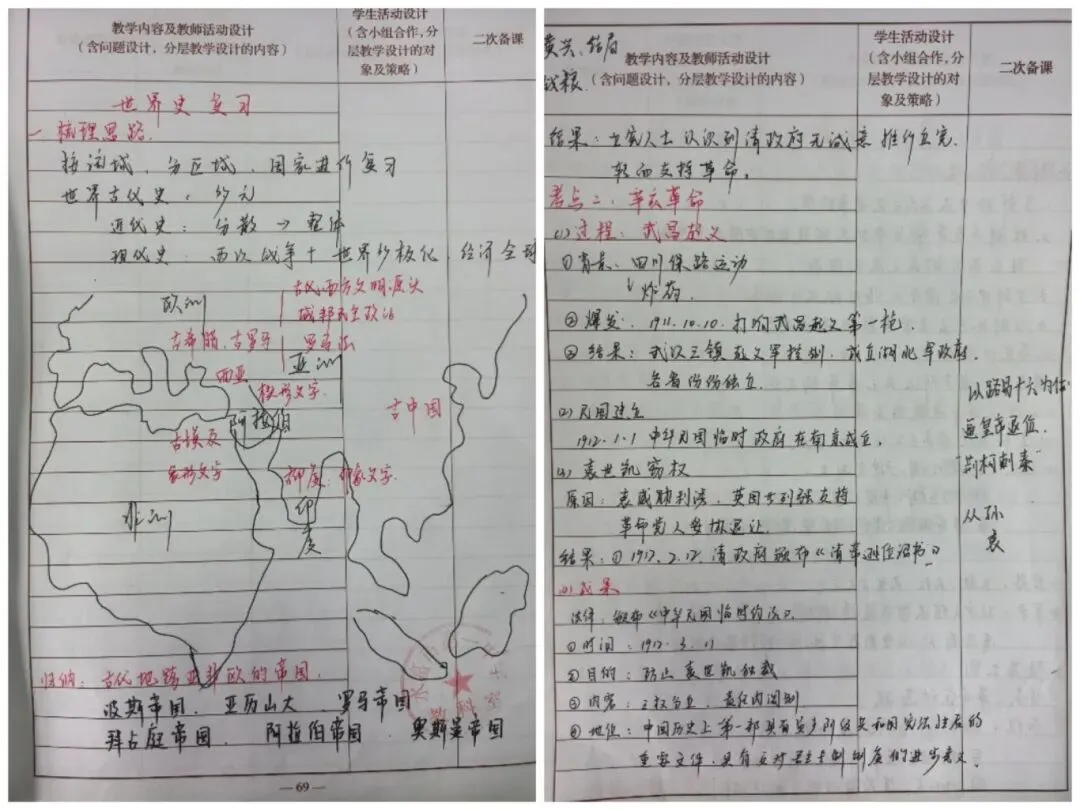 教学内容及教师活动设计
（含问题设计，分层教学设计的内容）
学生活动设计
（含小组合作，分
层教学设计的对
象及策略）
二次备课
世界史复习
一、梳理思路
按洲域、分区域、国家进行复习
世界古代史：多元
近代史：分散→整体
现代史：两次战争+世界多极化、经济全球
欧洲
古代西方文明源头
城邦民主政治
古希腊、古罗马
罗马法
亚洲
西亚
楔形文字
阿拉伯
古中国
古埃及
象形文字
印度：印章文字
印度
非洲
归纳：古代地跨亚非欧的帝国
波斯帝国、亚历山大、罗马帝国
拜占庭帝国、阿拉伯帝国、奥斯曼帝国
—69—
黄兴、结局
教学内容及教师活动设计
（含问题设计，分层教学设计的内容）
学生活动设计
（含小组合作，分
层教学设计的对
象及策略）
二次备课
结果：立宪人士认识到清政府无诚意推行立宪，
转而支持革命。
考点二、辛亥革命
(1)过程：武昌起义
①背景：四川保路运动
炸药
②爆发：1911.10.10.打响武昌起义第一枪
③结果：武汉三镇起义军控制，成立湖北军政府，
各省纷纷独立
(2)民国建立
1912.1.1中华民国临时政府在南京成立
(3)袁世凯窃权
原因：袁威胁利诱，英国等列强支持
革命党人妥协退让
结果：①1912.2.12.清政府颁布《清帝逊位诏书》
(4)成果
法律：颁布《中华民国临时约法》
①时间：1912.3.11
②目的：防止袁世凯独裁
③内容：主权在民、责任内阁制
④地位：中国历史上第一部具有资产阶级共和国宪法性质的
重要文件，具有反对君主专制制度的进步意义。
逼皇帝退位
"荆柯刺秦"
从孙
袁